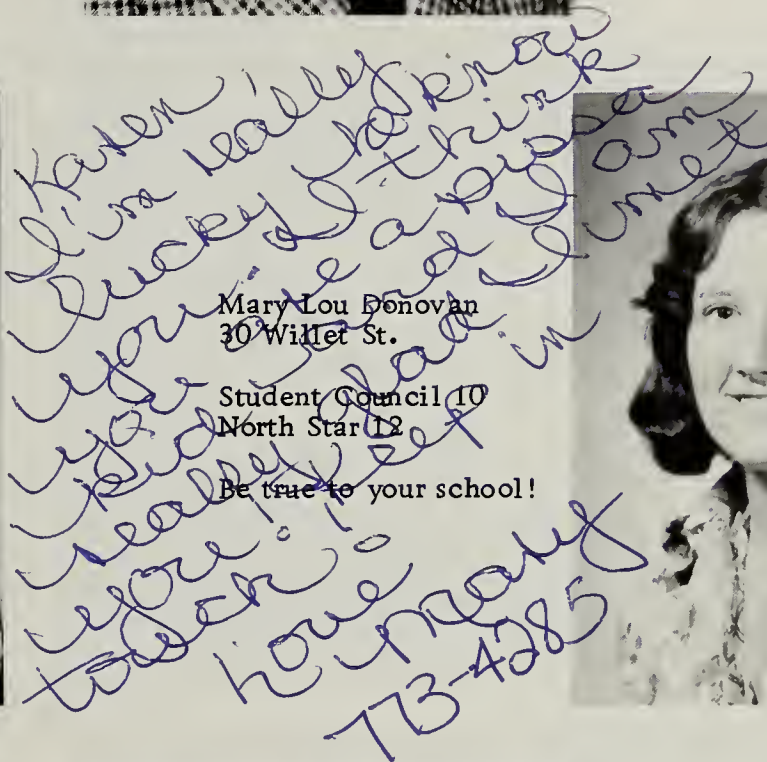 Karen,
I'm really
lucky to know
you. I think
you're a
you and I am
kid
really glad I met
you! Keep in
touch
Love
Mary
773-4285
Mary Lou Donovan
30 Willet St.
Student Council 10
North Star 12
Be true to your school!